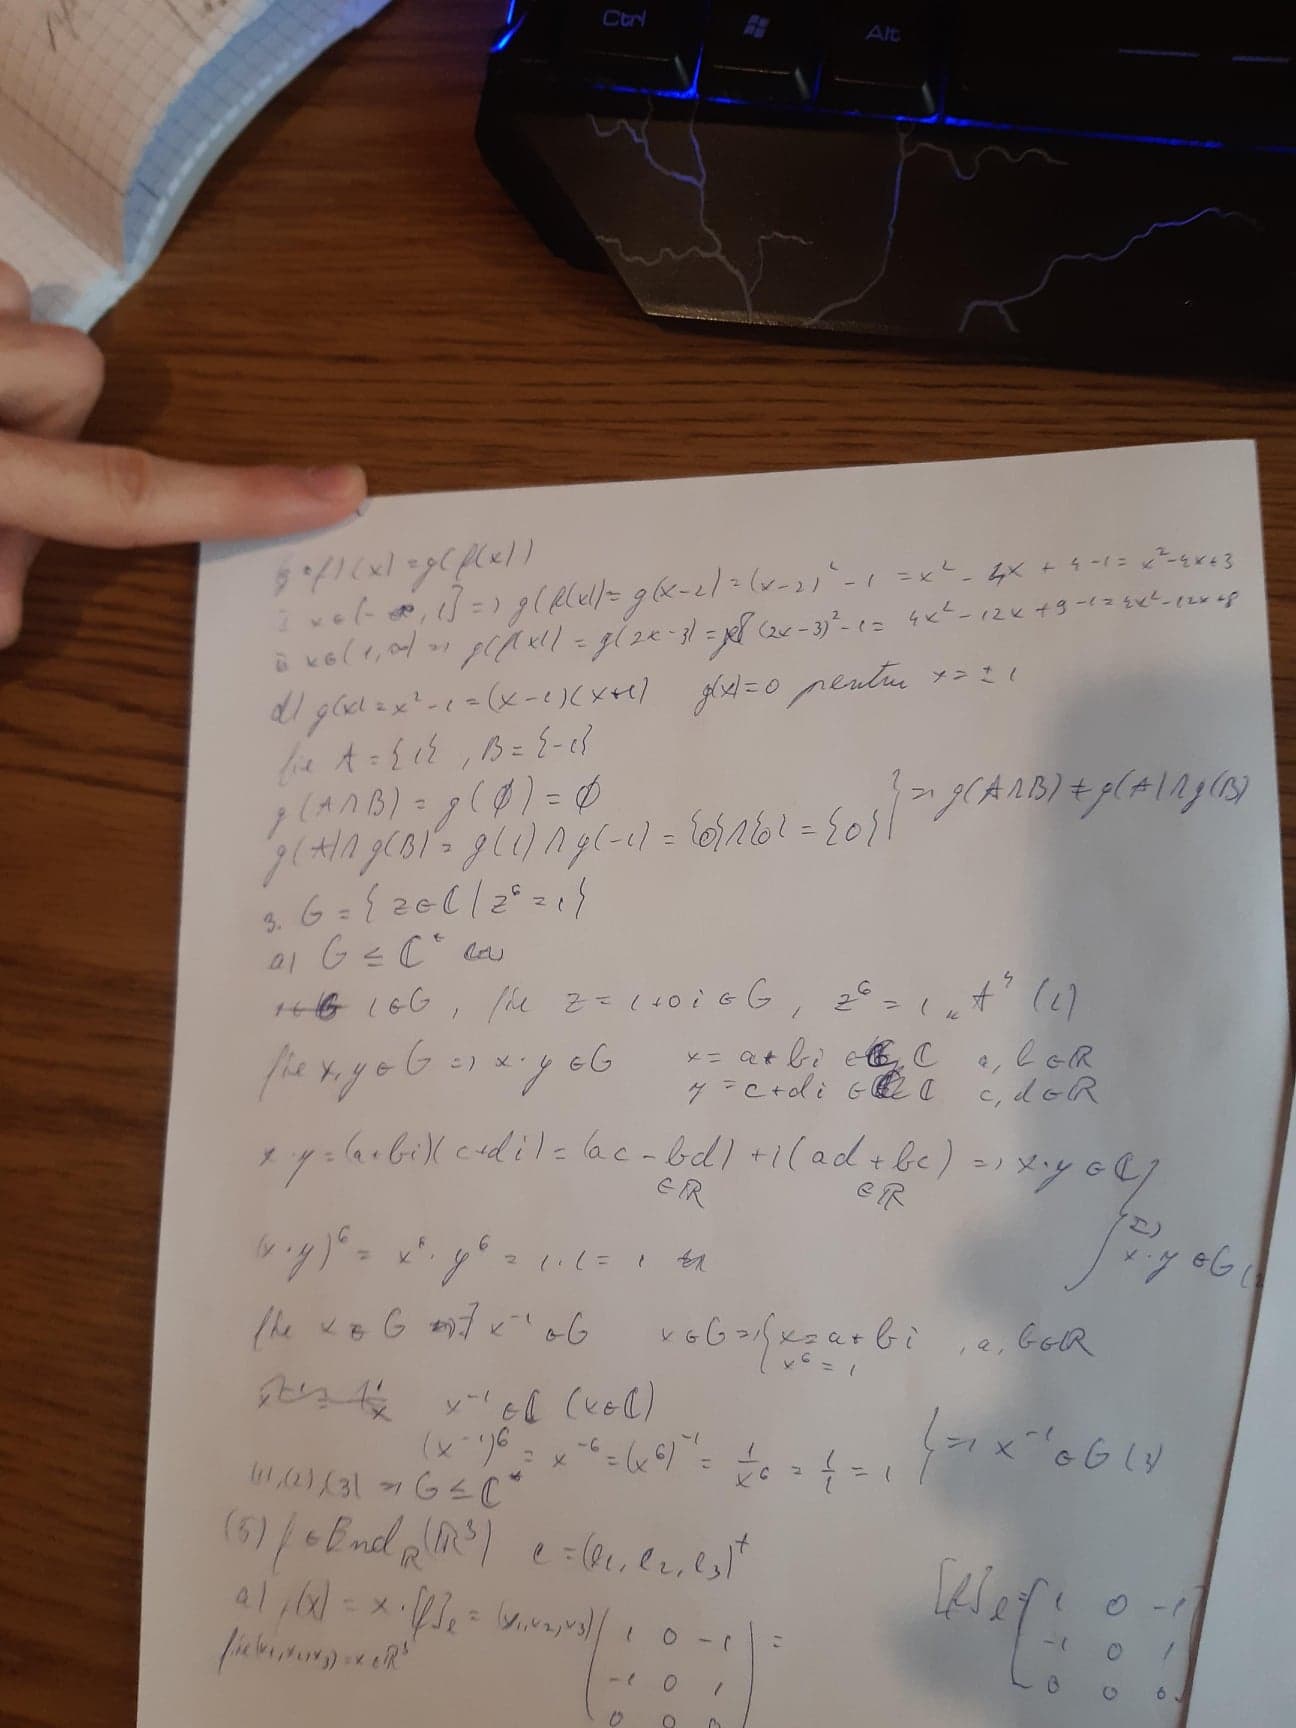 Ctrl
Alt
g∘f)(x)=g(f(x))
x∈(-∞,1] => g(f(x))=g(x-2)=(x-2)²-1=x²-4x+4-1=x²-4x+3
x∈(1,∞) => g(f(x))=g(2x-3)=(2x-3)²-1=4x²-12x+9-1=4x²-12x+8
d) g(x)=x²-1=(x-1)(x+1) g(x)=0 pentru x=±1
fie A={1}, B={-1}
g(A∩B)=g(∅)=∅
g(A)∩g(B)=g(1)∩g(-1)={0}∩{0}={0} } => g(A∩B)≠g(A)∩g(B)
3. G={z∈ℂ|z⁶=1}
a) G≤ℂ*
1∈G, fie z=1+0i∈G, z⁶=1 „A" (1)
fie x,y∈G => x·y∈G x=a+bi∈ℂ a,b∈ℝ
y=c+di∈ℂ c,d∈ℝ
x·y=(a+bi)(c+di)=(ac-bd)+i(ad+bc) => x·y∈ℂ }
∈ℝ ∈ℝ
=>
(x·y)⁶=x⁶·y⁶=1·1=1 x·y∈G
fie x∈G => ∃x⁻¹∈G x∈G => { x=a+bi, a,b∈ℝ
x⁶=1
x⁻¹∈ℂ (x∈ℂ)
(x⁻¹)⁶=x⁻⁶=(x⁶)⁻¹=1/x⁶=1/1=1 } => x⁻¹∈G (3)
(1),(2),(3) => G≤ℂ*
(5) f∈End_ℝ(ℝ³) e=(e₁,e₂,e₃)ᵗ
a) f(x)=x·[f]ₑ=(x₁,x₂,x₃)( 1 0 -1 ) = [f]ₑ=[ 1 0 -1
fie(x₁,x₂,x₃)=x∈ℝ³ -1 0 1 -1 0 1
0 0 0 0 0 0